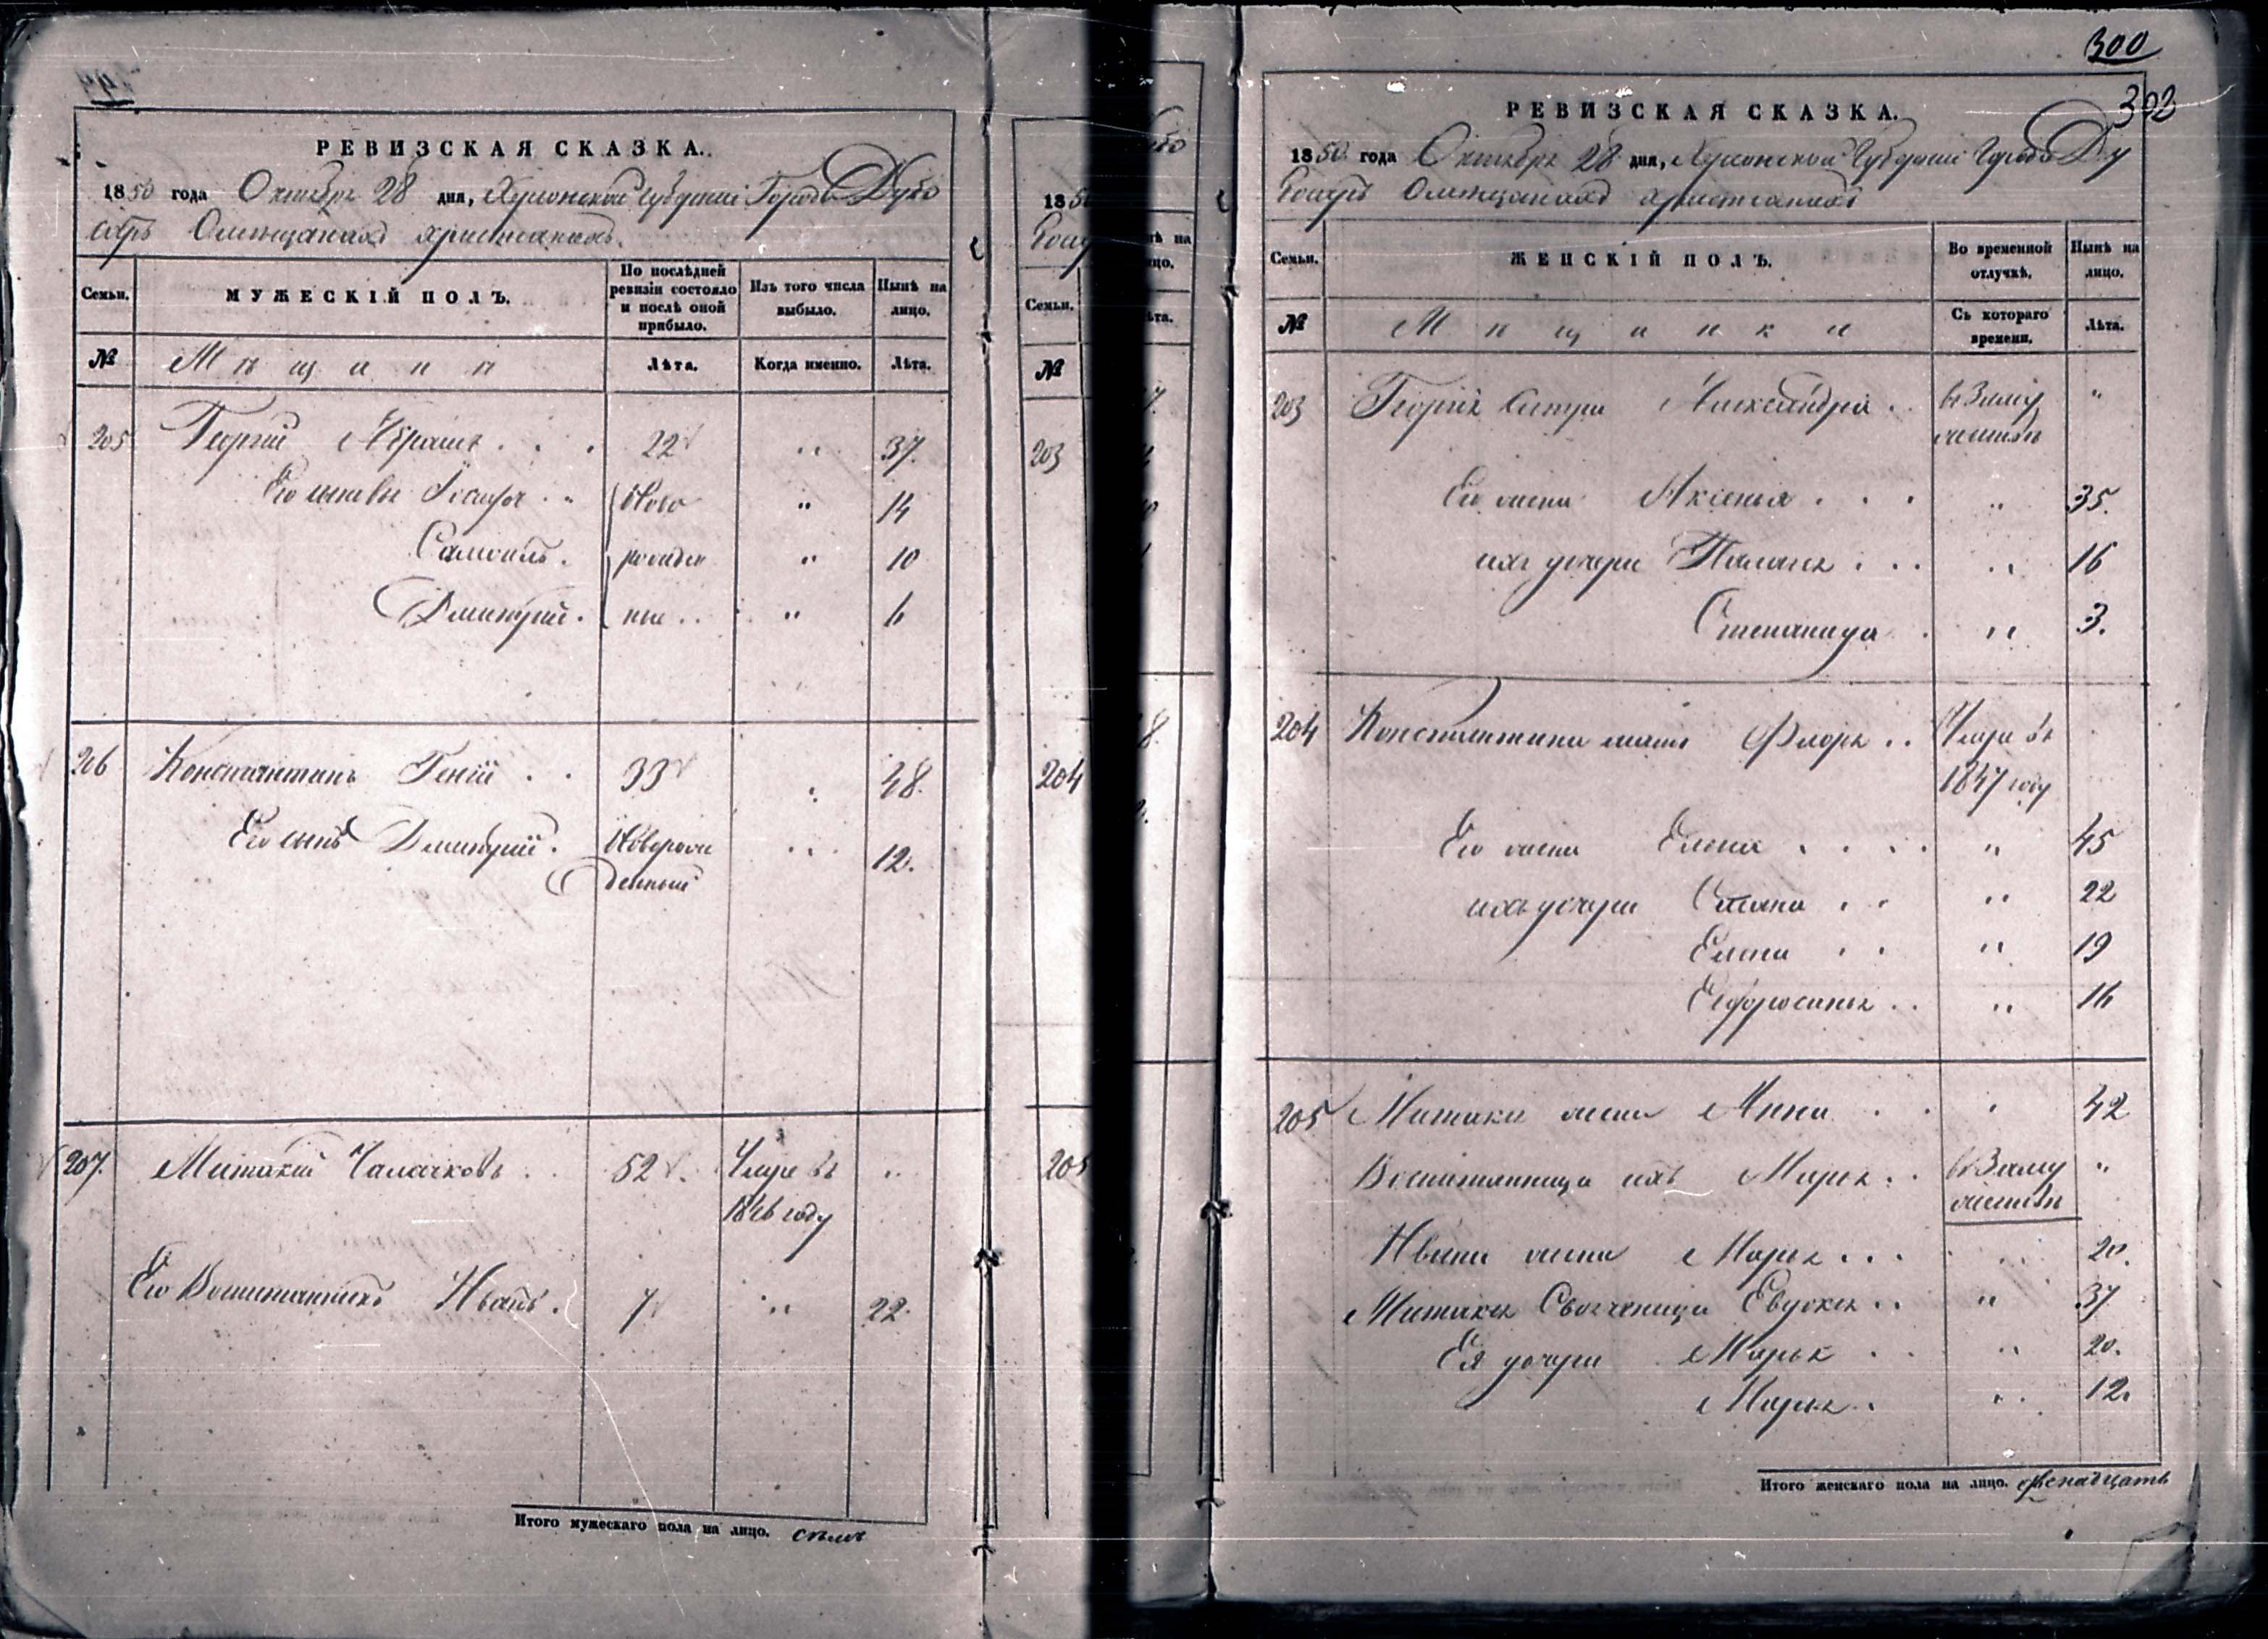 РЕВИЗСКАЯ СКАЗКА.
1850 года Октября 28 дня, Херсонской Губернии Города Дубо
сарь О мещанахъ христианахъ.
Семьи.
МУЖЕСКІЙ ПОЛЪ.
По послѣдней ревизіи состояло и послѣ оной прибыло.
Изъ того числа выбыло.
Нынѣ на лицо.
№
Мѣщане
Лѣта.
Когда именно.
Лѣта.
205 Георгий Абрашъ . . . 22 " 37.
Его сыновья Іосифъ . . Ново " 14
Самоилъ . рожден " 10
Дмитрий . ные . . " 6
206 Константинъ Гений . . 33 " 48.
Его сынъ Дмитрий . Новорож " 12.
денный
207. Митакий Чалачковъ . . 52 Умре въ "
1846 году
Его Воспитанникъ Иванъ . 7 " 22.
Итого мужескаго пола на лицо. семь
1850
Семьи.
№
203
204
205
300
302
РЕВИЗСКАЯ СКАЗКА.
1850 года Октября 28 дня, Херсонской Губернии Города Ду
босарь О мещанахъ христианахъ
Семьи.
ЖЕНСКІЙ ПОЛЪ.
Во временной отлучкѣ.
Нынѣ на лицо.
№
Мѣщанки
Съ котораго времени.
Лѣта.
203 Георгия сестра Александра . . въ Заму "
жестве
Его жена Аксенья . . . " 35.
ихъ дочери Палагея . . . " 16
Степанида . " 3.
204 Константина мать Флоря . . Умре въ
1847 году
Его жена Елена . . . . " 45
ихъ дочери Смана . . " 22
Елена . . " 19
Ефросинья . . " 16
205 Митаки жена Анна . . . " 42
Воспитанница ихъ Марья . . въ Заму "
жестве
Ивана жена Марья . . . " 20.
Митаки Своячница Евдокия . . " 37
Ея дочери Марья . . " 20.
Марья . " 12.
Итого женскаго пола на лицо. двенадцать